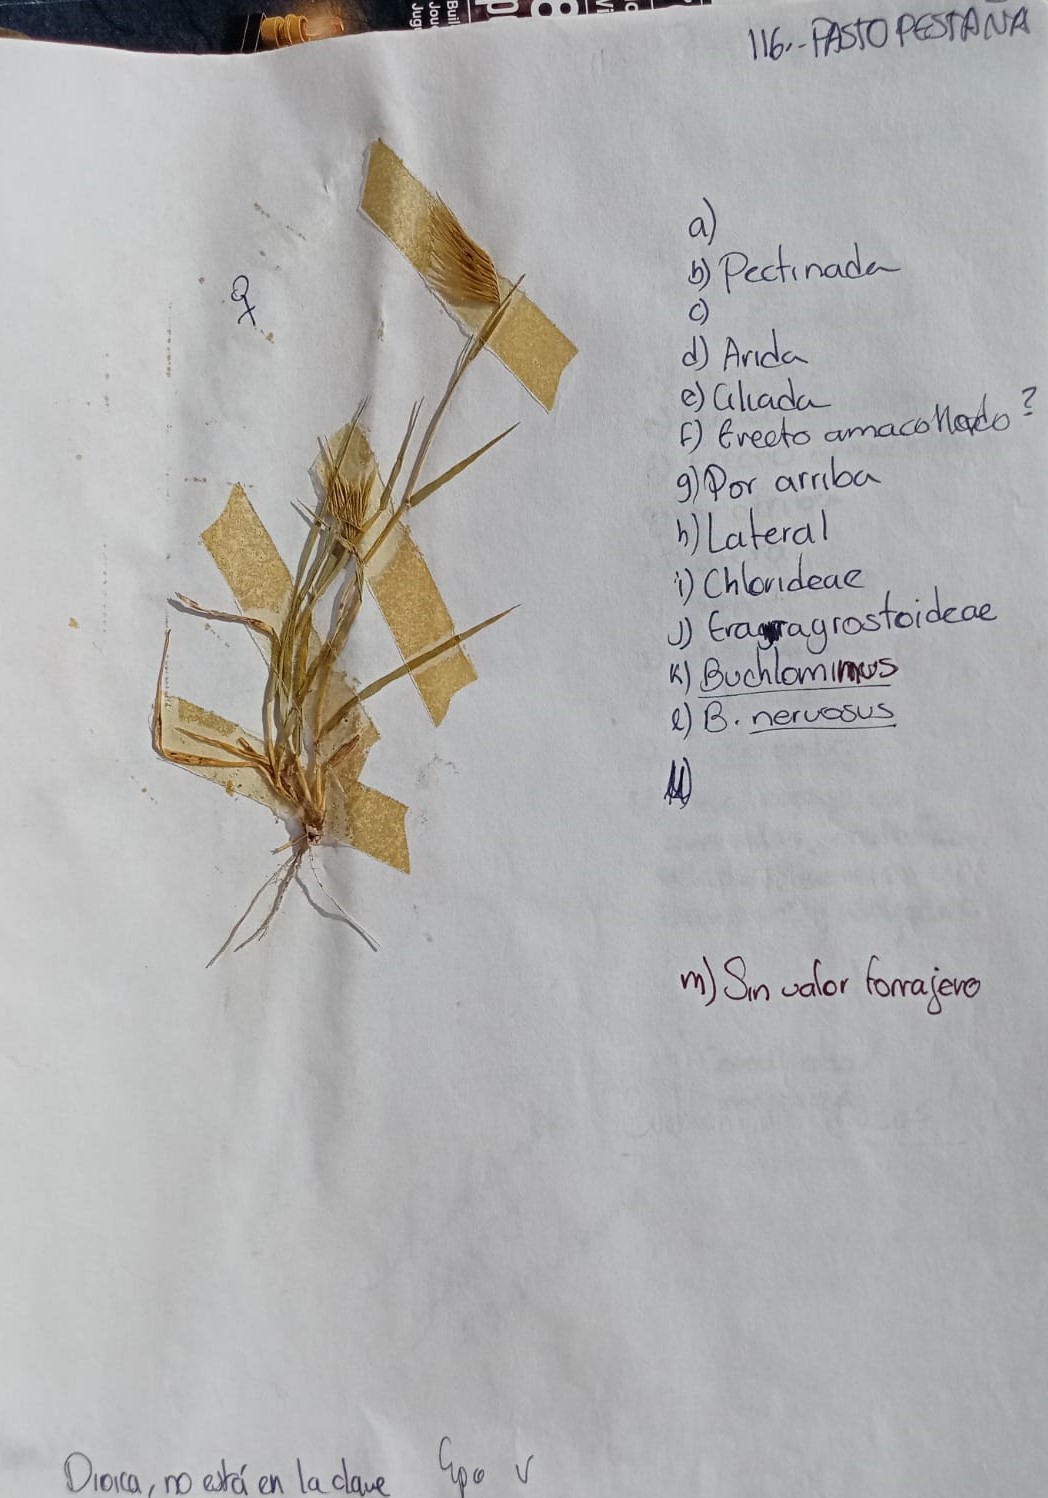 116.- PASTO PESTAÑA
♀
a)
b) Pectinada
c)
d) Arida
e) Ciliada
f) Erecto amacollado?
g) Por arriba
h) Lateral
i) Chlorideae
j) Eragragrostoideae
k) Buchlomimus
l) B. nervosus
m) Sin valor forrajero
Dioica, no está en la clave Gpo V